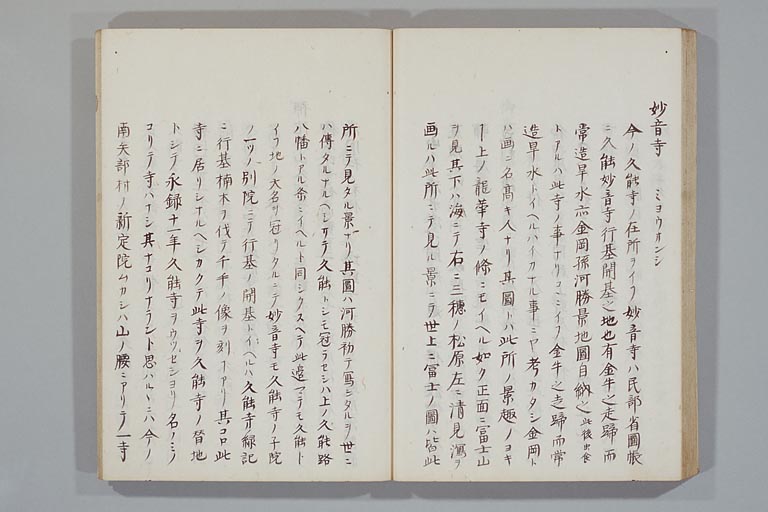 妙音寺 ミヨウオンシ
今ノ久能寺ノ在所ヲイフ妙音寺ハ民部省圖帳
ニ久能妙音寺行基開基之地也有金牛之走歸而
常造旱水亦金岡孫河勝景地圖自納之此後出食
トアルハ此寺ノ事ナリコヽニイフ金牛之走歸而常
造旱水トイヘルハイカナル事ニヤ考カタシ金岡ト
ハ画ニ名高キ人ナリ其圖トハ此所ノ景趣ノヨキ
上ノ龍華寺ノ條ニモイヘル如ク正面ニ富士山
ヲ見其下ハ海ニテ右ニ三穗ノ松原左ニ清見潟ヲ
画ルハ此所ニテ見ル景ニテ世上ニ富士ノ圖ハ皆此
所ニテ見タル景ナリ其圖ハ河勝初テ寫シタルヲ世ニ
ハ傳タルナルヘシサテ久能トシモ冠ラセシハ上ノ久能路
八幡トアル条ニイヘルト同シクスヘテ此邉マテモ久能ト
イフ地ノ大名ヲ冠リタルニテ妙音寺モ久能寺ノ子院
ノ一ツノ別院ニテ行基ノ開基トイヘルハ久能寺縁記
ニ行基楠木ヲ伐テ千手ノ像ヲ刻トアリ其コロ此
寺ニ居リシナルヘシカクテ此寺ヲ久能寺ノ替地
トシテ永録十一年久能寺ヲウツセシヨリ名ノミノ
コリテ寺ハナシ其ナコリナラント思ハルヽハ今ノ
南矢部村ノ新定院ムカシハ山ノ腰ニアリテ一寺